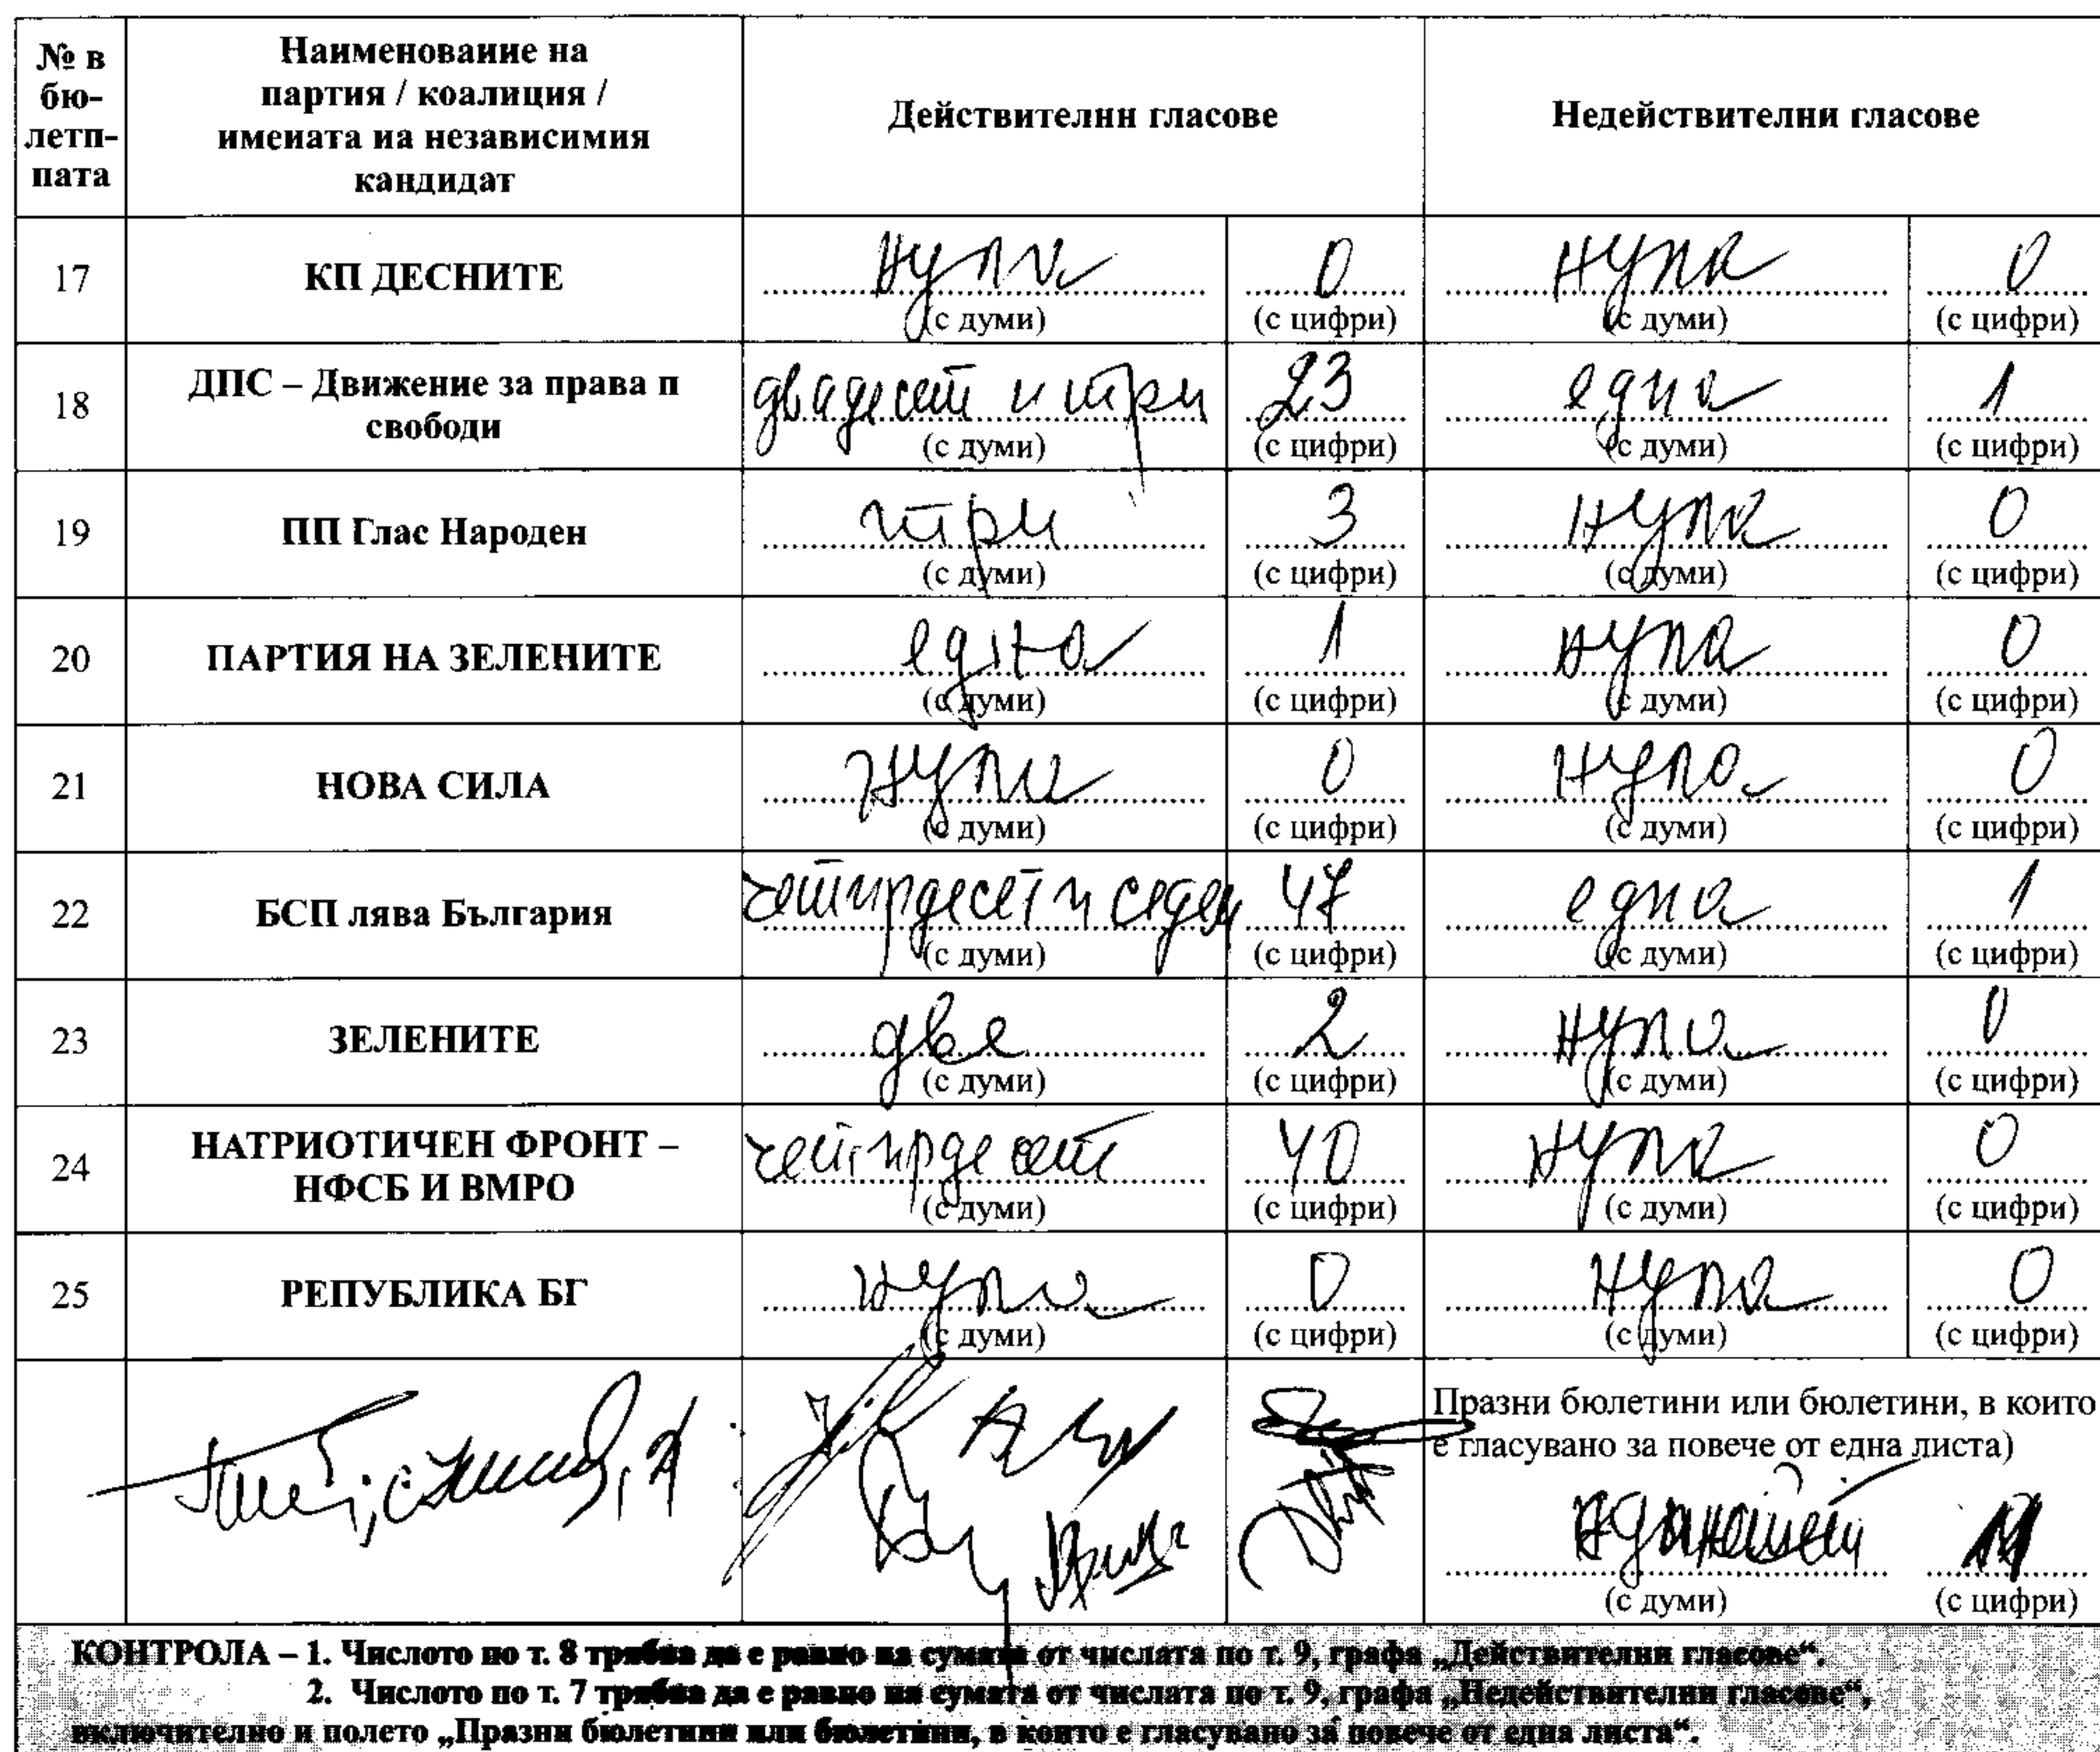 № в бю-летп-пата | Наименование на партия / коалиция / имената иа независимия кандидат | Действителнн гласове | Недействителни гласове
17 | КП ДЕСНИТЕ | нула (с думи) | 0 (с цифри) | нула (с думи) | 0 (с цифри)
18 | ДПС – Движение за права п свободи | двадесет и три (с думи) | 23 (с цифри) | една (с думи) | 1 (с цифри)
19 | ПП Глас Народен | три (с думи) | 3 (с цифри) | нула (с думи) | 0 (с цифри)
20 | ПАРТИЯ НА ЗЕЛЕНИТЕ | една (с думи) | 1 (с цифри) | нула (с думи) | 0 (с цифри)
21 | НОВА СИЛА | нула (с думи) | 0 (с цифри) | нула (с думи) | 0 (с цифри)
22 | БСП лява България | четирдесет и седем (с думи) | 47 (с цифри) | една (с думи) | 1 (с цифри)
23 | ЗЕЛЕНИТЕ | две (с думи) | 2 (с цифри) | нула (с думи) | 0 (с цифри)
24 | НАТРИОТИЧЕН ФРОНТ – НФСБ И ВМРО | четирдесет (с думи) | 40 (с цифри) | нула (с думи) | 0 (с цифри)
25 | РЕПУБЛИКА БГ | нула (с думи) | 0 (с цифри) | нула (с думи) | 0 (с цифри)
Празни бюлетини или бюлетини, в които
е гласувано за повече от една листа)
(с думи) (с цифри)
КОНТРОЛА – 1. Числото по т. 8 трябва да е равно на сумата от числата по т. 9, графа „Действителни гласове“.
2. Числото по т. 7 трябва да е равно на сумата от числата по т. 9, графа „Недействителни гласове“,
включително и полето „Празни бюлетини или бюлетини, в които е гласувано за повече от една листа“.